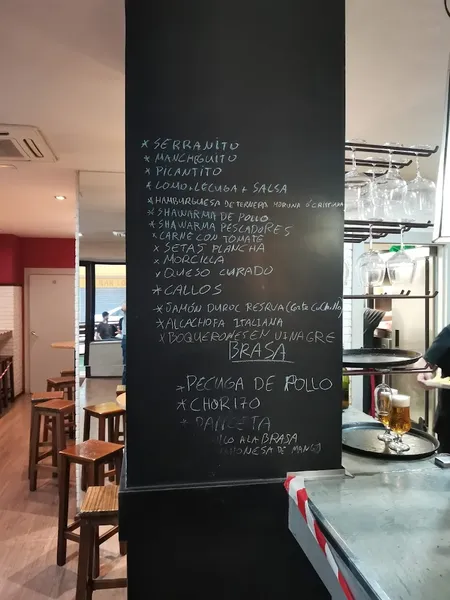 * SERRANITO
* MANCHEGUITO
* PICANTITO
* LOMO+LECUGA+SALSA
* HAMBURGUESA DE TERNERA MORUNA Ó CRISTIANA
* SHAWARMA DE POLLO
* SHAWARMA PESCADORES
* CARNE CON TOMATE
* SETAS PLANCHA
* MORCILLA
* QUESO CURADO
* CALLOS
* JAMÓN DUROC
* ALCACHOFA ITALIANA
* BOQUERONES EN VINAGRE
BRASA
* PECUGA DE POLLO
* CHORIZO
* PANCETA
A LA BRASA
DE MANGO